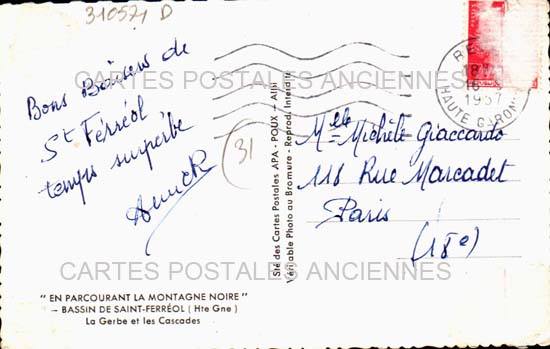 310571 D
Bons Baisers de
St Férréol
temps surperbe
Annick
31
CARTES POSTALES ANCIENNES
CARTES POSTALES ANCIENNES
Sté des Cartes Postales APA - POUX - Albi
Véritable Photo au Bromure - Reprod. Interdite
POSTES
18
1957
HAUTE GARONNE
Melle Michèle Giaccardo
118 Rue Marcadet
Paris
(18e)
" EN PARCOURANT LA MONTAGNE NOIRE "
— BASSIN DE SAINT-FERRÉOL ( Hte Gne )
La Gerbe et les Cascades